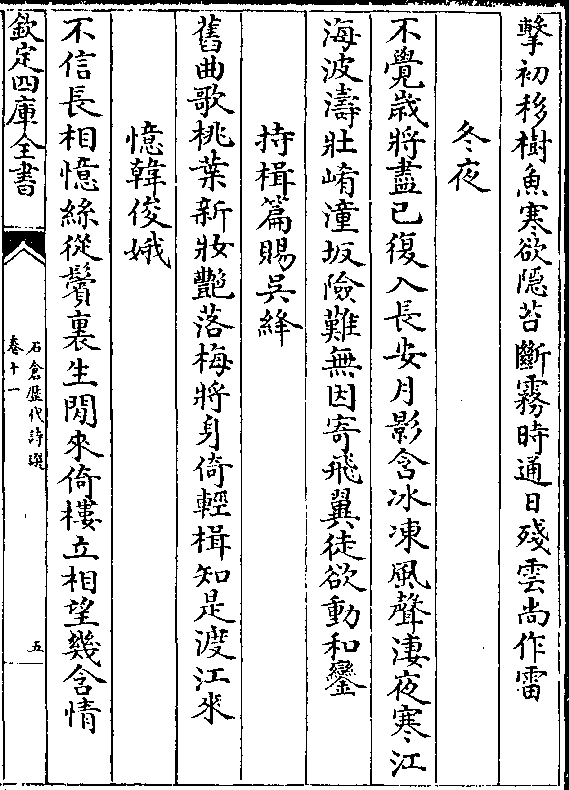 擊初移樹魚寒欲隠苔斷霧時通日殘雲尚作雷
冬夜
不覺歳將盡已復入長安月影含冰凍風聲淒夜寒江
海波濤壯崤潼坂險難無因寄飛翼徒欲動和鑾
持楫篇賜吳絳
舊曲歌桃葉新妝艷落梅將身倚輕楫知是渡江來
憶韓俊娥
不信長相憶絲從鬢裏生閒來倚樓立相望幾含情
欽定四庫全書
石倉歴代詩選
卷十一
五